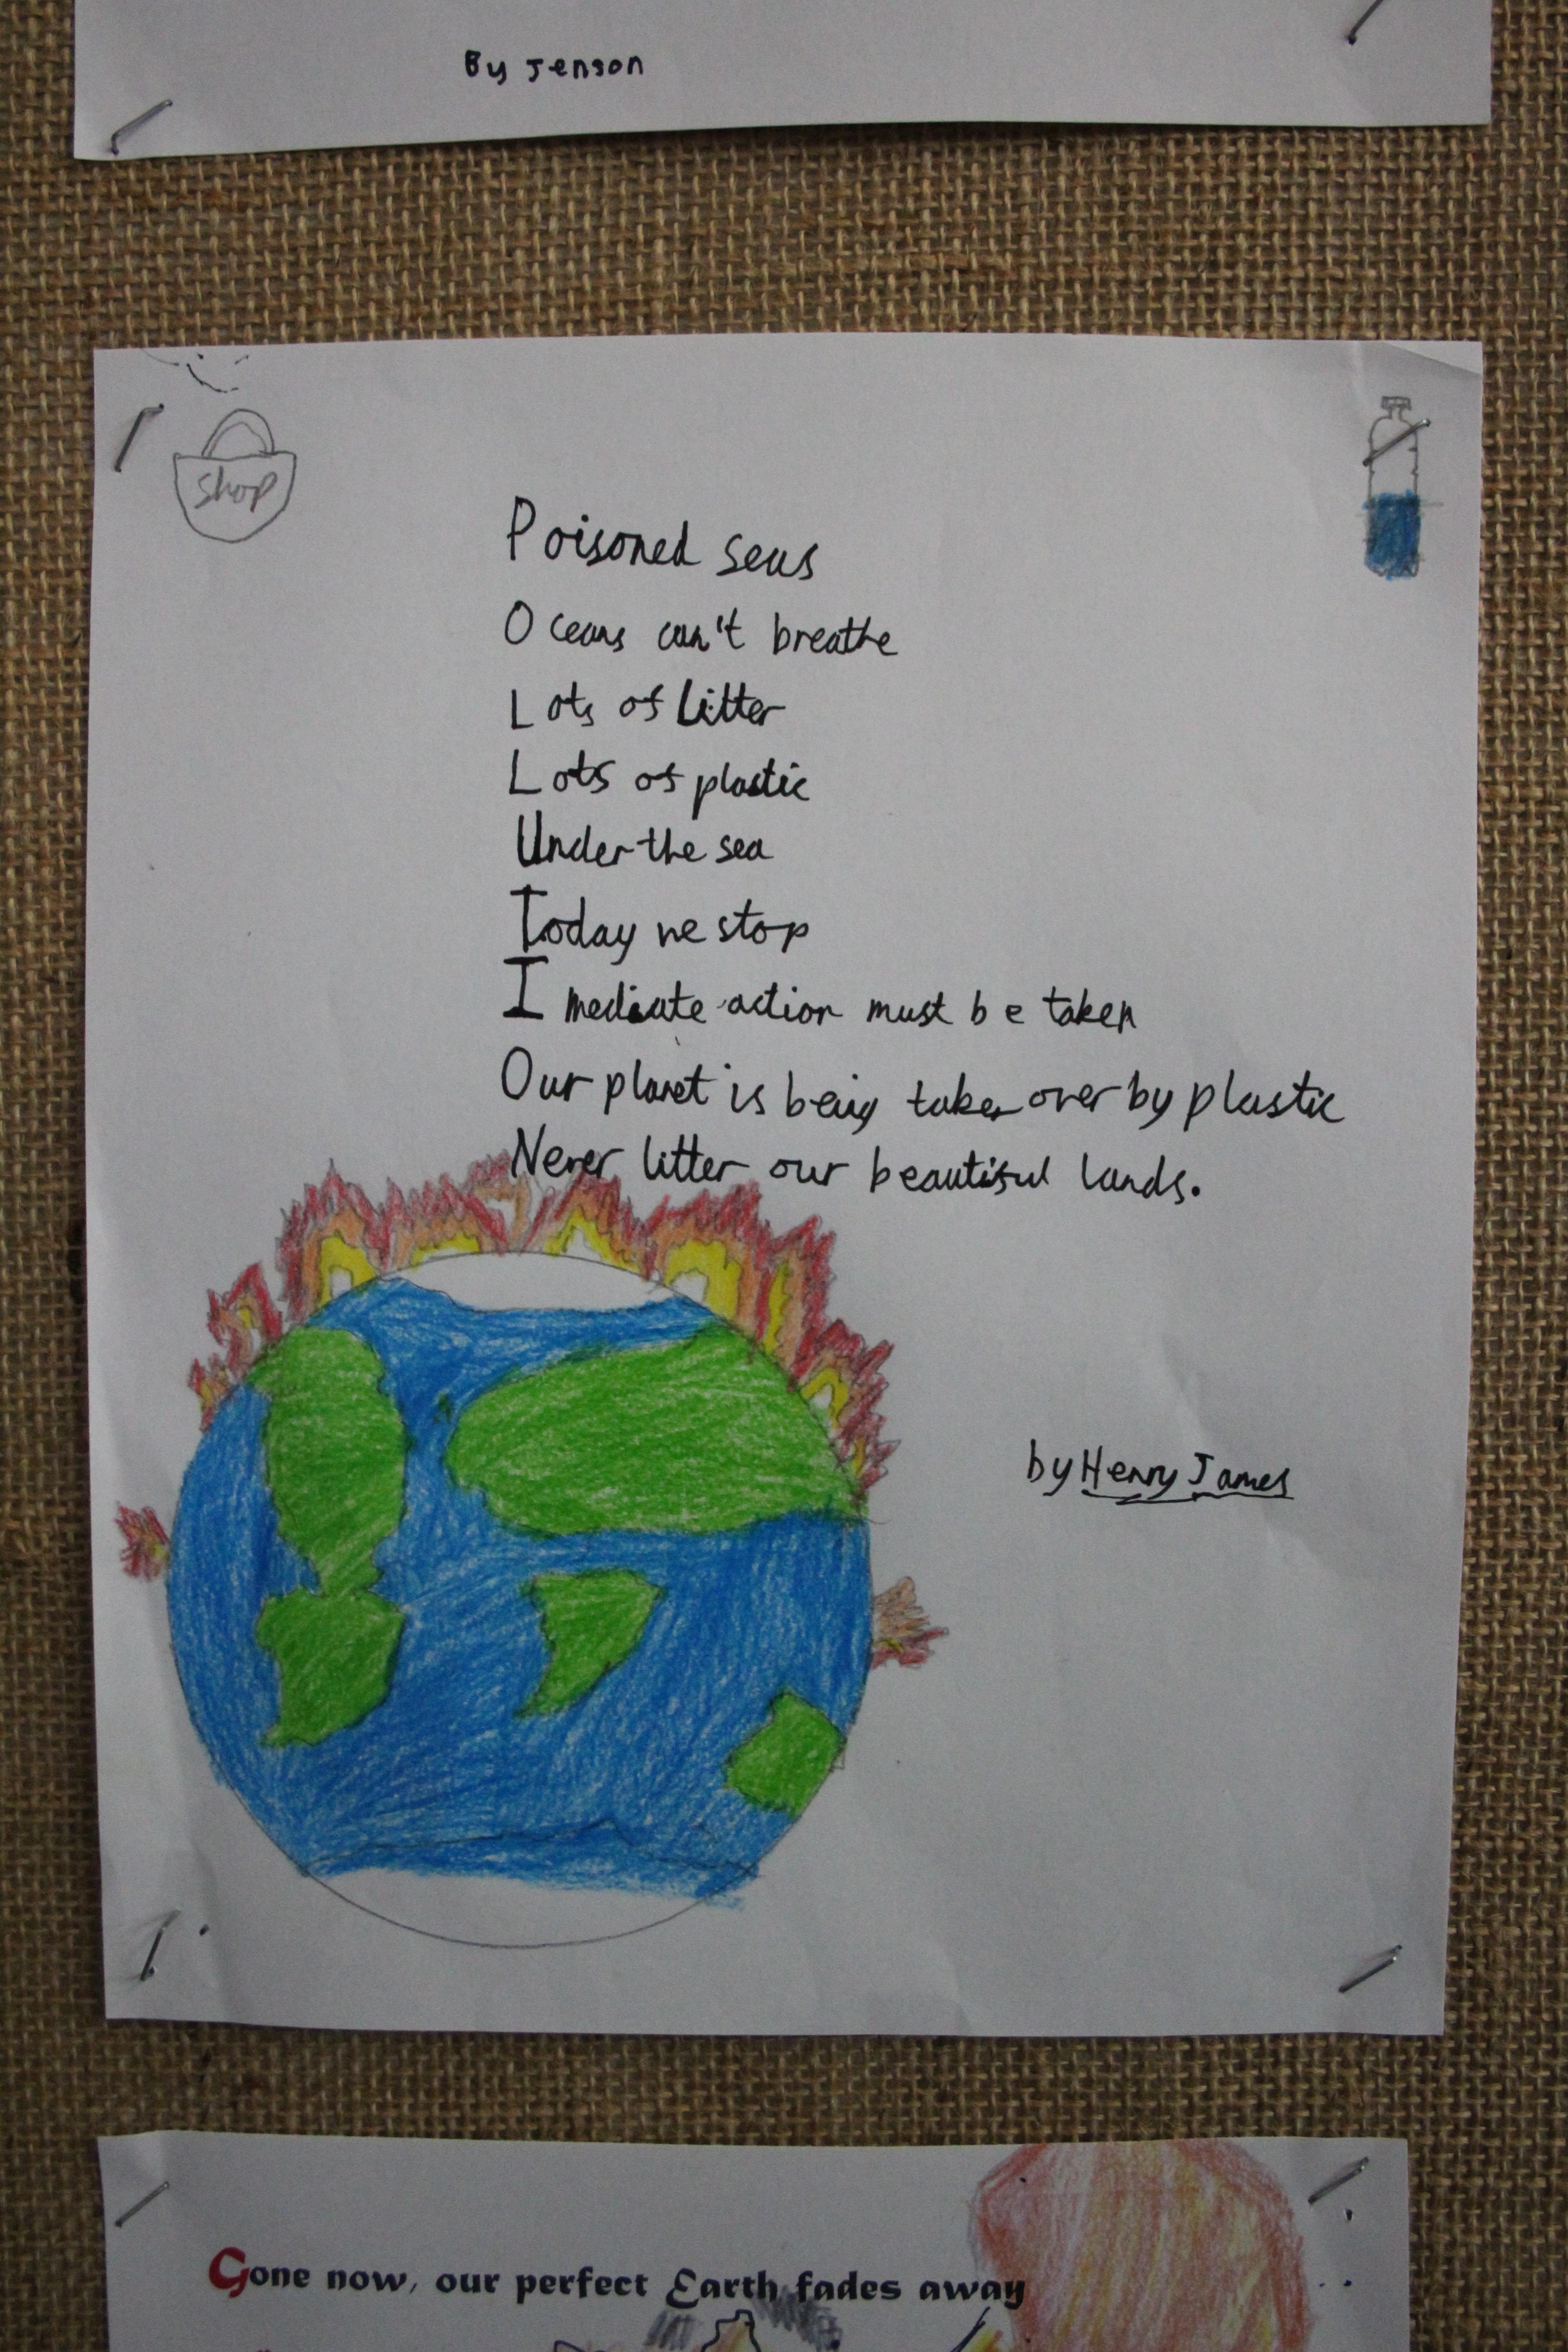 By Jenson
Shop
Poisoned seas
Oceans can't breathe
Lots of litter
Lots of plastic
Under the sea
Today we stop
Imediate action must be taken
Our planet is being taken over by plastic
Never litter our beautiful lands.
by Henry James
Gone now, our perfect Earth fades away